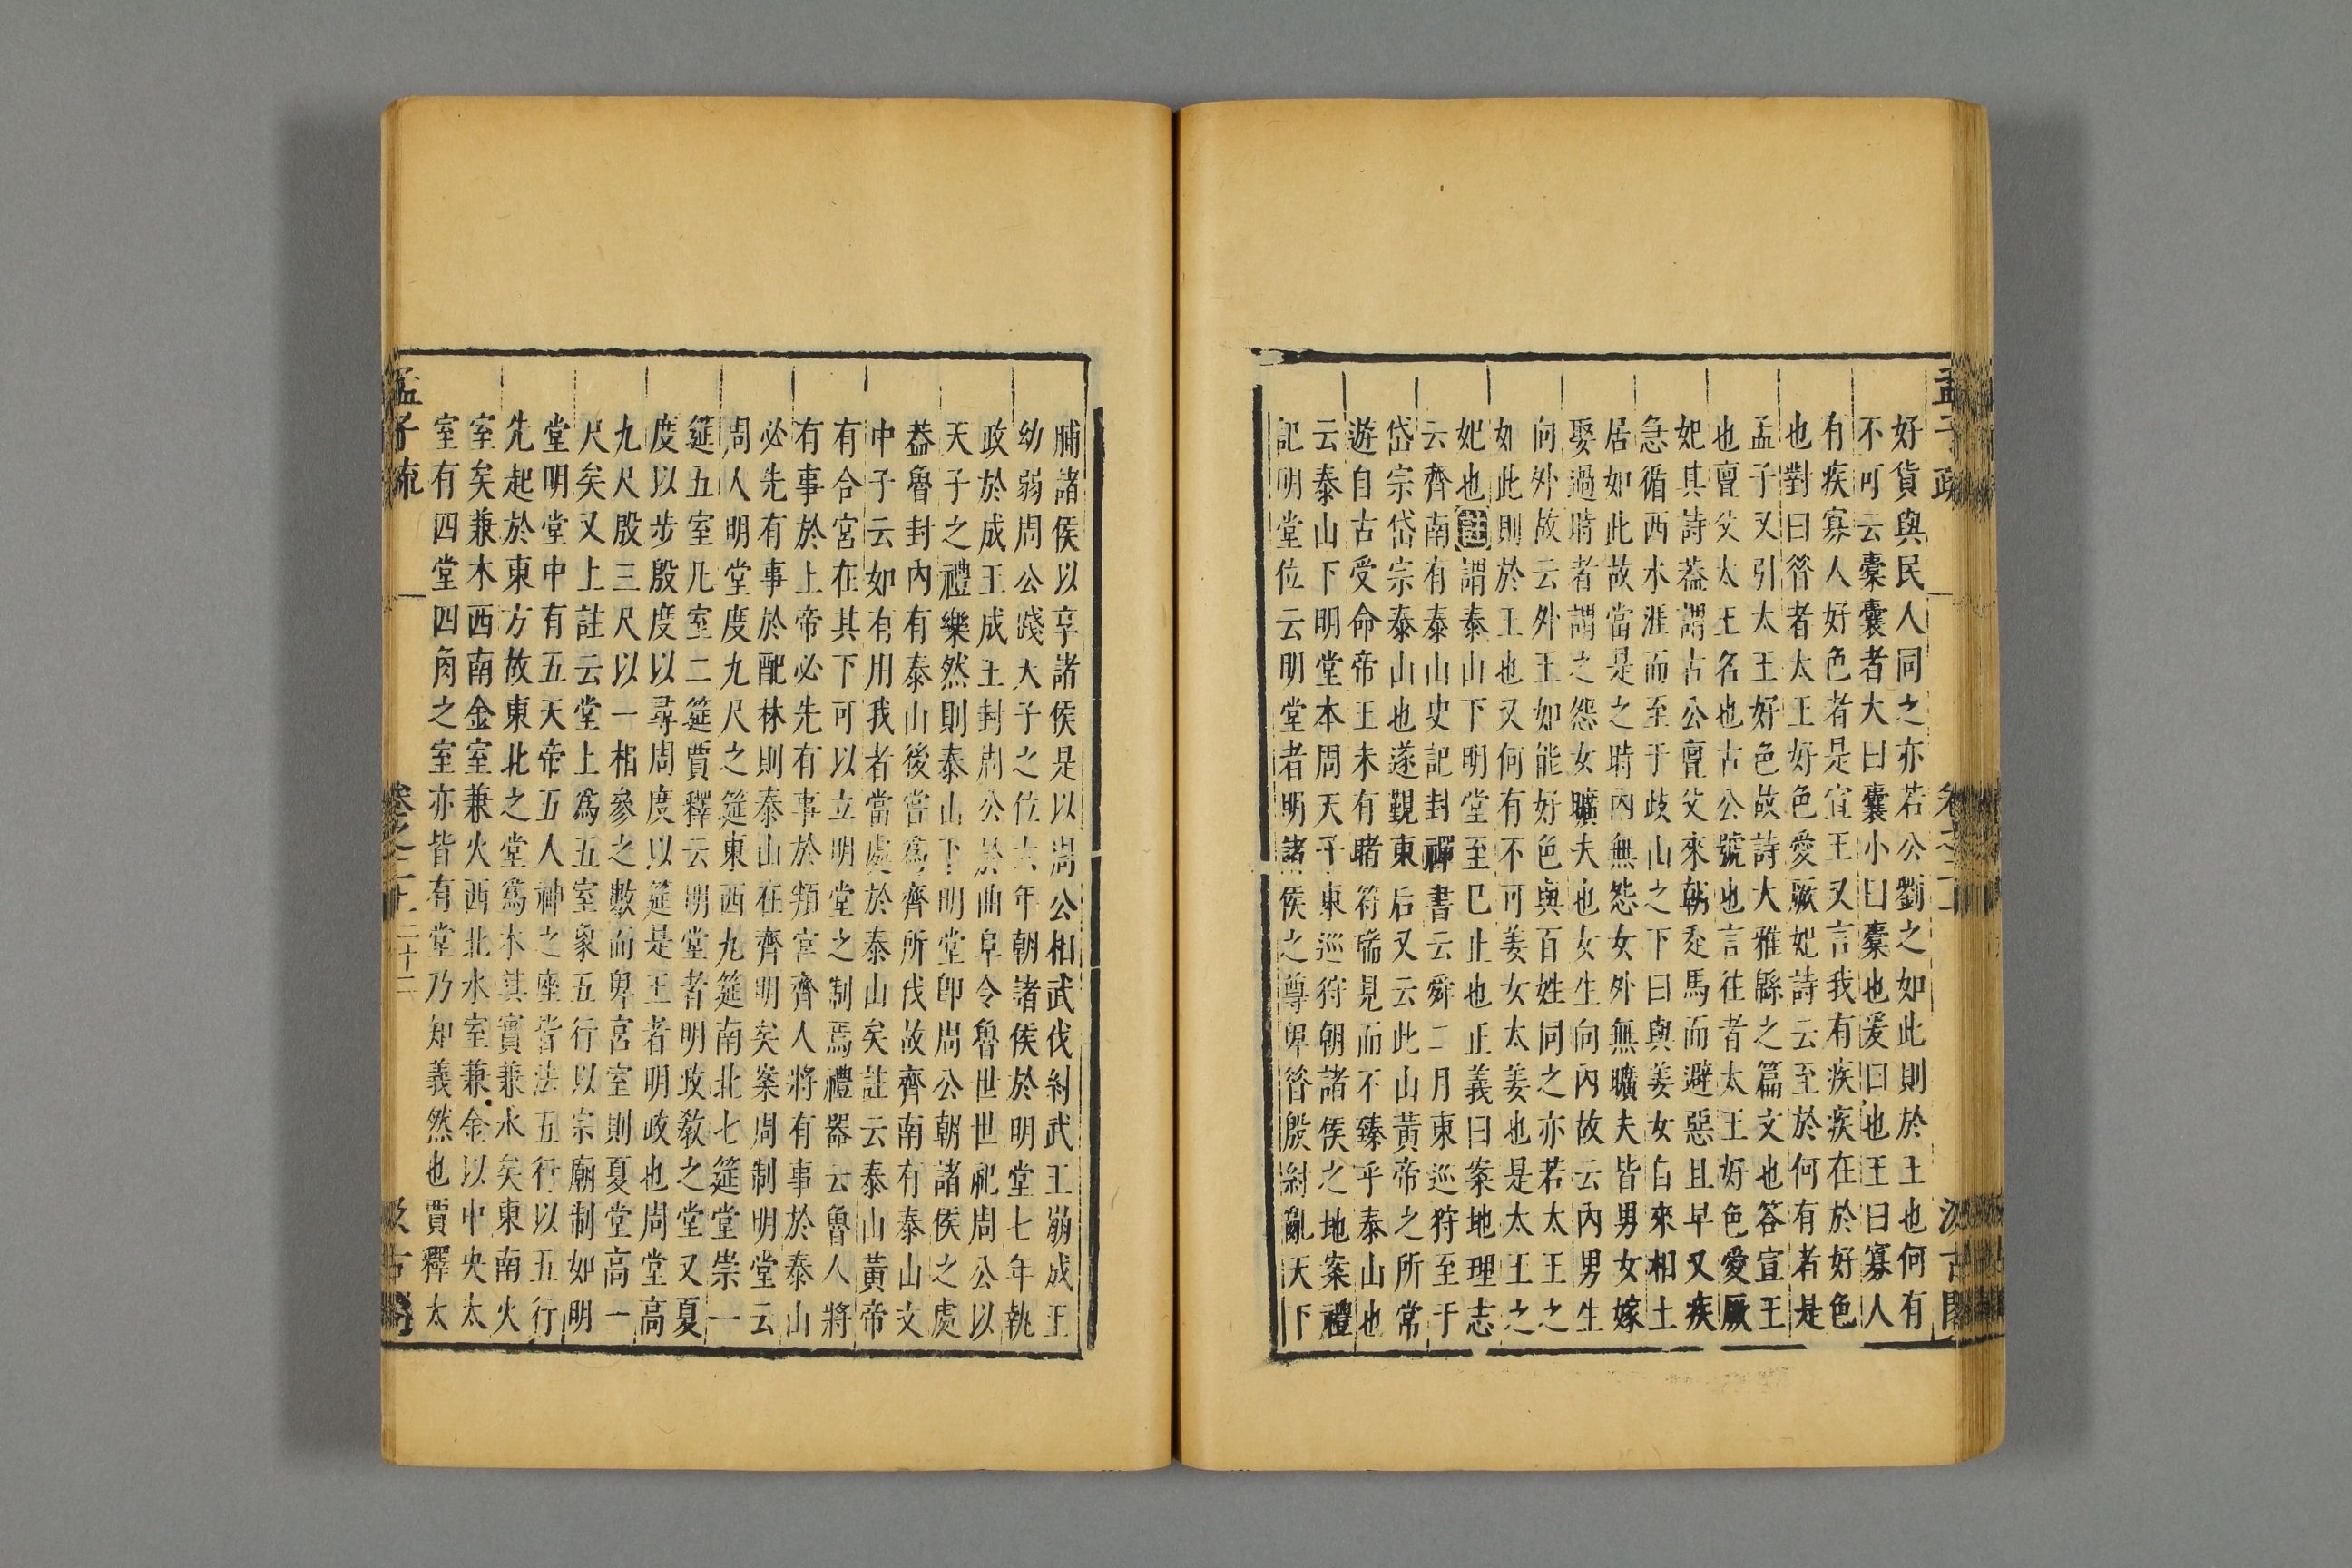 好貨與民人同之亦若公劉之如此則於王也何有
不可云橐囊者大曰囊小曰橐也爰曰也王曰寡人
有疾寡人好色者是宣王又言我有疾疾在於好色
也對曰昝者太王好色愛厥妃詩云至於何有者是
孟子又引太王好色故詩大雅緜之篇文也答宣王
也亶父太王名也古公號也言往者太王好色愛厥
妃其詩葢謂古公亶父來朝走馬而避惡且早又疾
急循西水涯而至于歧山之下曰與姜女自來相土
居如此故當是之時內無怨女外無曠夫皆男女嫁
娶過時者謂之怨女曠夫也女生向內故云內男生
向外故云外王如能好色與百姓同之亦若太王之
如此則於王也又何有不可姜女太姜也是太王之
妃也註謂泰山下明堂至巳止也正義曰案地理志
云齊南有泰山史記封禪書云舜二月東巡狩至于
岱宗岱宗泰山也遂覲東后又云此山黃帝之所常
遊自古受命帝王未有睹符瑞見而不臻乎泰山也
云泰山下明堂本周天子東巡狩朝諸侯之地案禮
記明堂位云明堂者明諸侯之尊卑昝殷紂亂天下
脯諸侯以享諸侯是以周公相武伐紂武王崩成王
幼弱周公踐天子之位六年朝諸侯於明堂七年執
政於成王成王封周公於曲阜令魯世世祀周公以
天子之禮樂然則泰山下明堂卽周公朝諸侯之處
葢魯封內有泰山後嘗爲齊所伐故齊南有泰山文
中子云如有用我者當處於泰山矣註云泰山黃帝
有合宮在其下可以立明堂之制焉禮器云魯人將
有事於上帝必先有事於頖宮齊人將有事於泰山
必先有事於配林則泰山在齊明矣案周制明堂云
周人明堂度九尺之筵東西九筵南北七筵堂崇一
筵五室凡室二筵賈釋云明堂者明政敎之堂又夏
度以步殷度以尋周度以筵是王者明政也周堂高
九尺殷三尺以一相參之數而卑宮室則夏堂高一
尺矣又上註云堂上爲五室象五行以宗廟制如明
堂明堂中有五天帝五人神之座皆法五行以五行
先起於東方故東北之堂爲木其實兼水矣東南火
室矣兼木西南金室兼火西北水室兼金以中央太
室有四堂四角之室亦皆有堂乃知義然也賈釋太
孟子疏 卷之二上 二十三 汲古閣